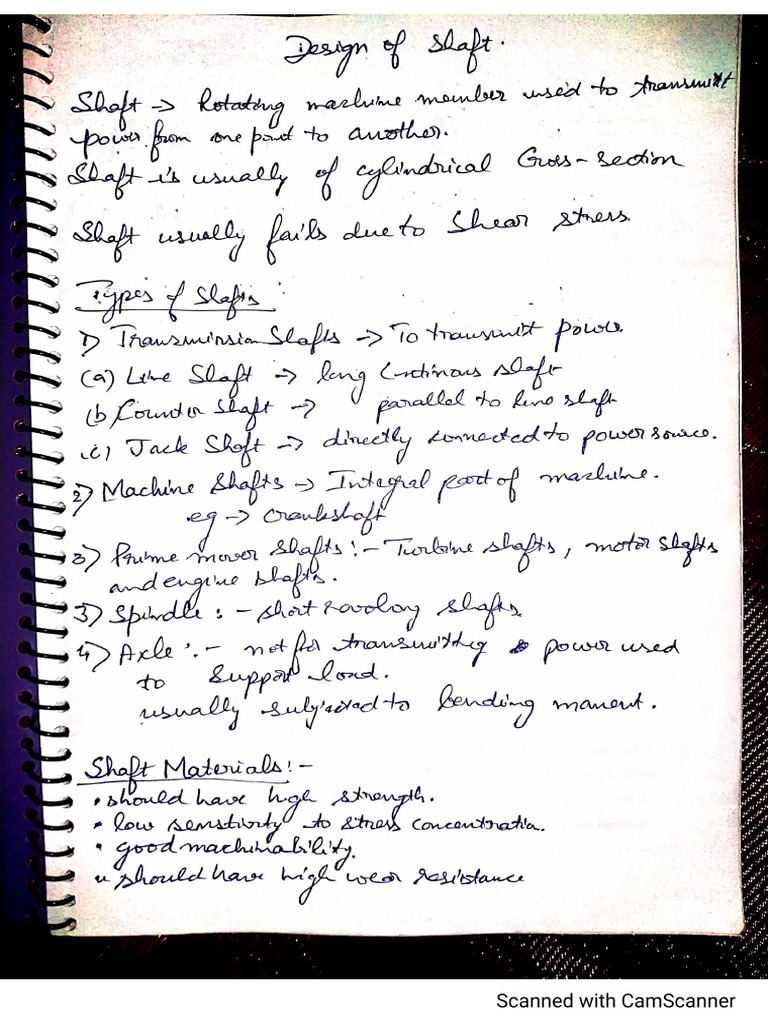 Design of Shaft.
Shaft → Rotating machine member used to transmit
power from one point to another.
Shaft is usually of cylindrical Cross-section
Shaft usually fails due to Shear stress
Types of Shafts :
1) Transmission Shafts → To transmit power.
(a) Line Shaft → long Continous shaft
(b) Counter Shaft → parallel to line shaft
(c) Jack Shaft → directly connected to power source.
2) Machine Shafts → Integral part of machine.
eg → Crankshaft
3) Prime mover Shafts :- Turbine shafts, motor shafts
and engine shafts.
3) Spindle :- short revolving shafts
4) Axle :- not for transmitting power used
to support load.
usually subjected to bending moment.
Shaft Materials :-
• should have high strength.
• low senstivity to stress concentration.
• good machinability.
• should have high wear resistance
Scanned with CamScanner